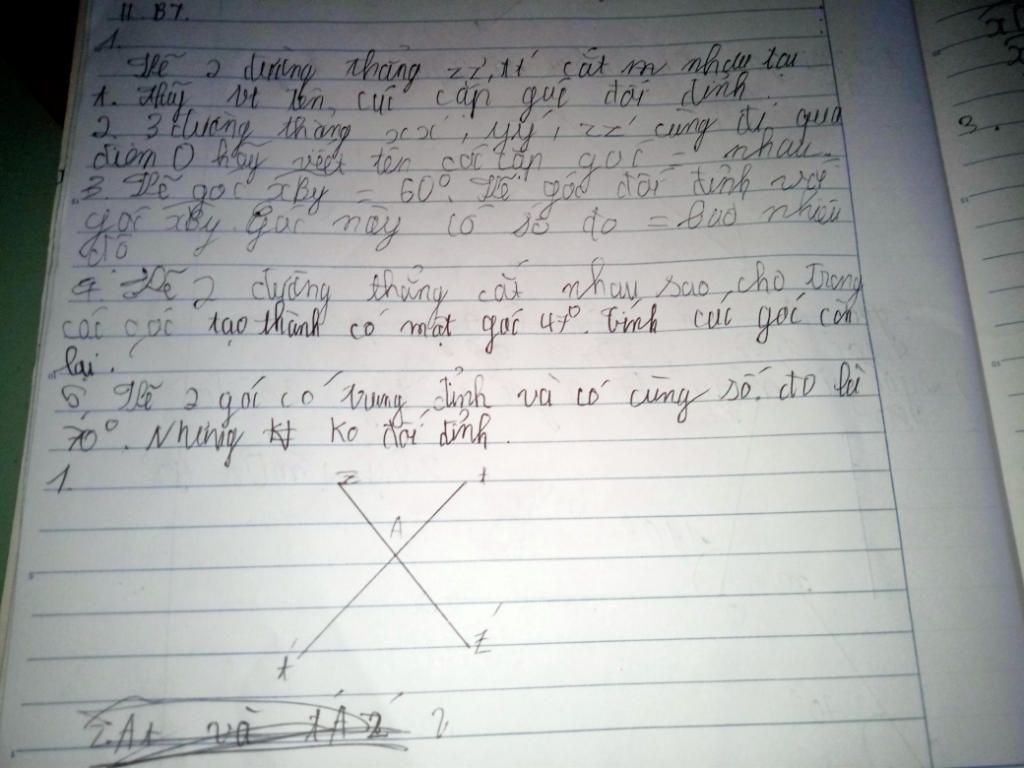 II. B7.
1.
Vẽ 2 đường thẳng zz', tt' cắt m nhau tại
1. Hãy vt tên các cặp góc đối đỉnh.
2. 3 đường thẳng xx', yy', zz' cùng đi qua
điểm O hãy viết tên các cặp góc = nhau.
3. Vẽ góc xBy = 60°. Vẽ góc đối đỉnh với
góc xBy. Góc này có số đo = bao nhiêu
độ
4. Vẽ 2 đường thẳng cắt nhau sao cho trong
các góc tạo thành có một góc 47°. Tính các góc còn
lại.
5. Vẽ 2 góc có trung đỉnh và có cùng số đo là
70°. Nhưng ko đối đỉnh.
1.
z t
A
t' z'
zAt và t'Az'